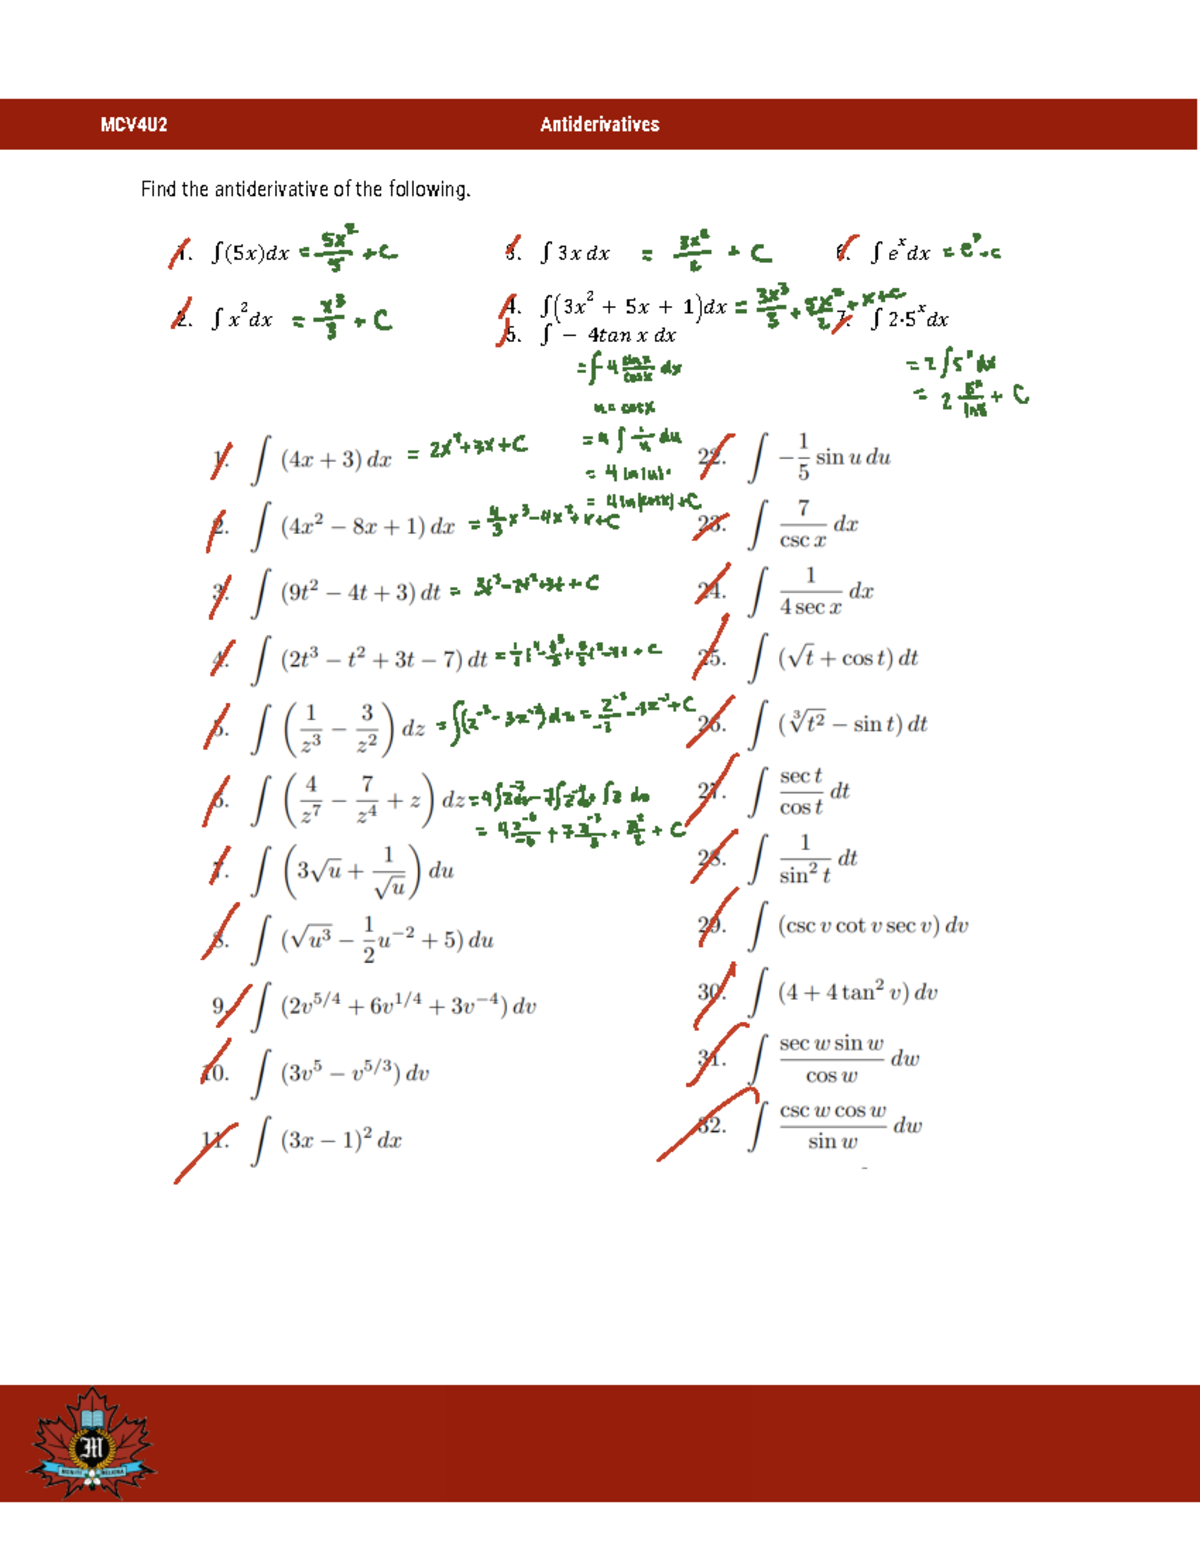 MCV4U2 Antiderivatives
Find the antiderivative of the following.
1. ∫(5x)dx = 5x²/5 + C
3. ∫ 3x dx = 3x²/2 + C
6. ∫ eˣdx = eˣ + c
2. ∫ x²dx = x³/3 + C
4. ∫(3x² + 5x + 1)dx = 3x³/3 + 5x²/2 + x + C
5. ∫ − 4tan x dx
= ∫-4 sin x/cos x dx
u = cos x
= 4 ∫ 1/u du
= 4 ln|u|
= 4 ln|cos x| + C
7. ∫ 2·5ˣdx
= 2 ∫5ˣ dx
= 2 5ˣ/ln5 + C
1. ∫ (4x + 3) dx = 2x² + 3x + C
2. ∫ (4x² − 8x + 1) dx = 4/3 x³ - 4x² + x + C
3. ∫ (9t² − 4t + 3) dt = 3t³ - 2t² + 3t + C
4. ∫ (2t³ − t² + 3t − 7) dt
5. ∫ (1/z³ − 3/z²) dz = ∫(z⁻³ - 3z⁻²) dz
6. ∫ (4/z⁷ − 7/z⁴ + z) dz
7. ∫ (3√u + 1/√u) du
8. ∫ (√u³ − 1/2 u⁻² + 5) du
9. ∫ (2v^5/4 + 6v^1/4 + 3v⁻⁴) dv
10. ∫ (3v⁵ − v^5/3) dv
11. ∫ (3x − 1)² dx
22. ∫ −1/5 sin u du
23. ∫ 7/csc x dx
24. ∫ 1/4 sec x dx
25. ∫ (√t + cos t) dt
26. ∫ (∛t² − sin t) dt
27. ∫ sec t/cos t dt
28. ∫ 1/sin² t dt
29. ∫ (csc v cot v sec v) dv
30. ∫ (4 + 4 tan² v) dv
31. ∫ sec w sin w/cos w dw
32. ∫ csc w cos w/sin w dw
M